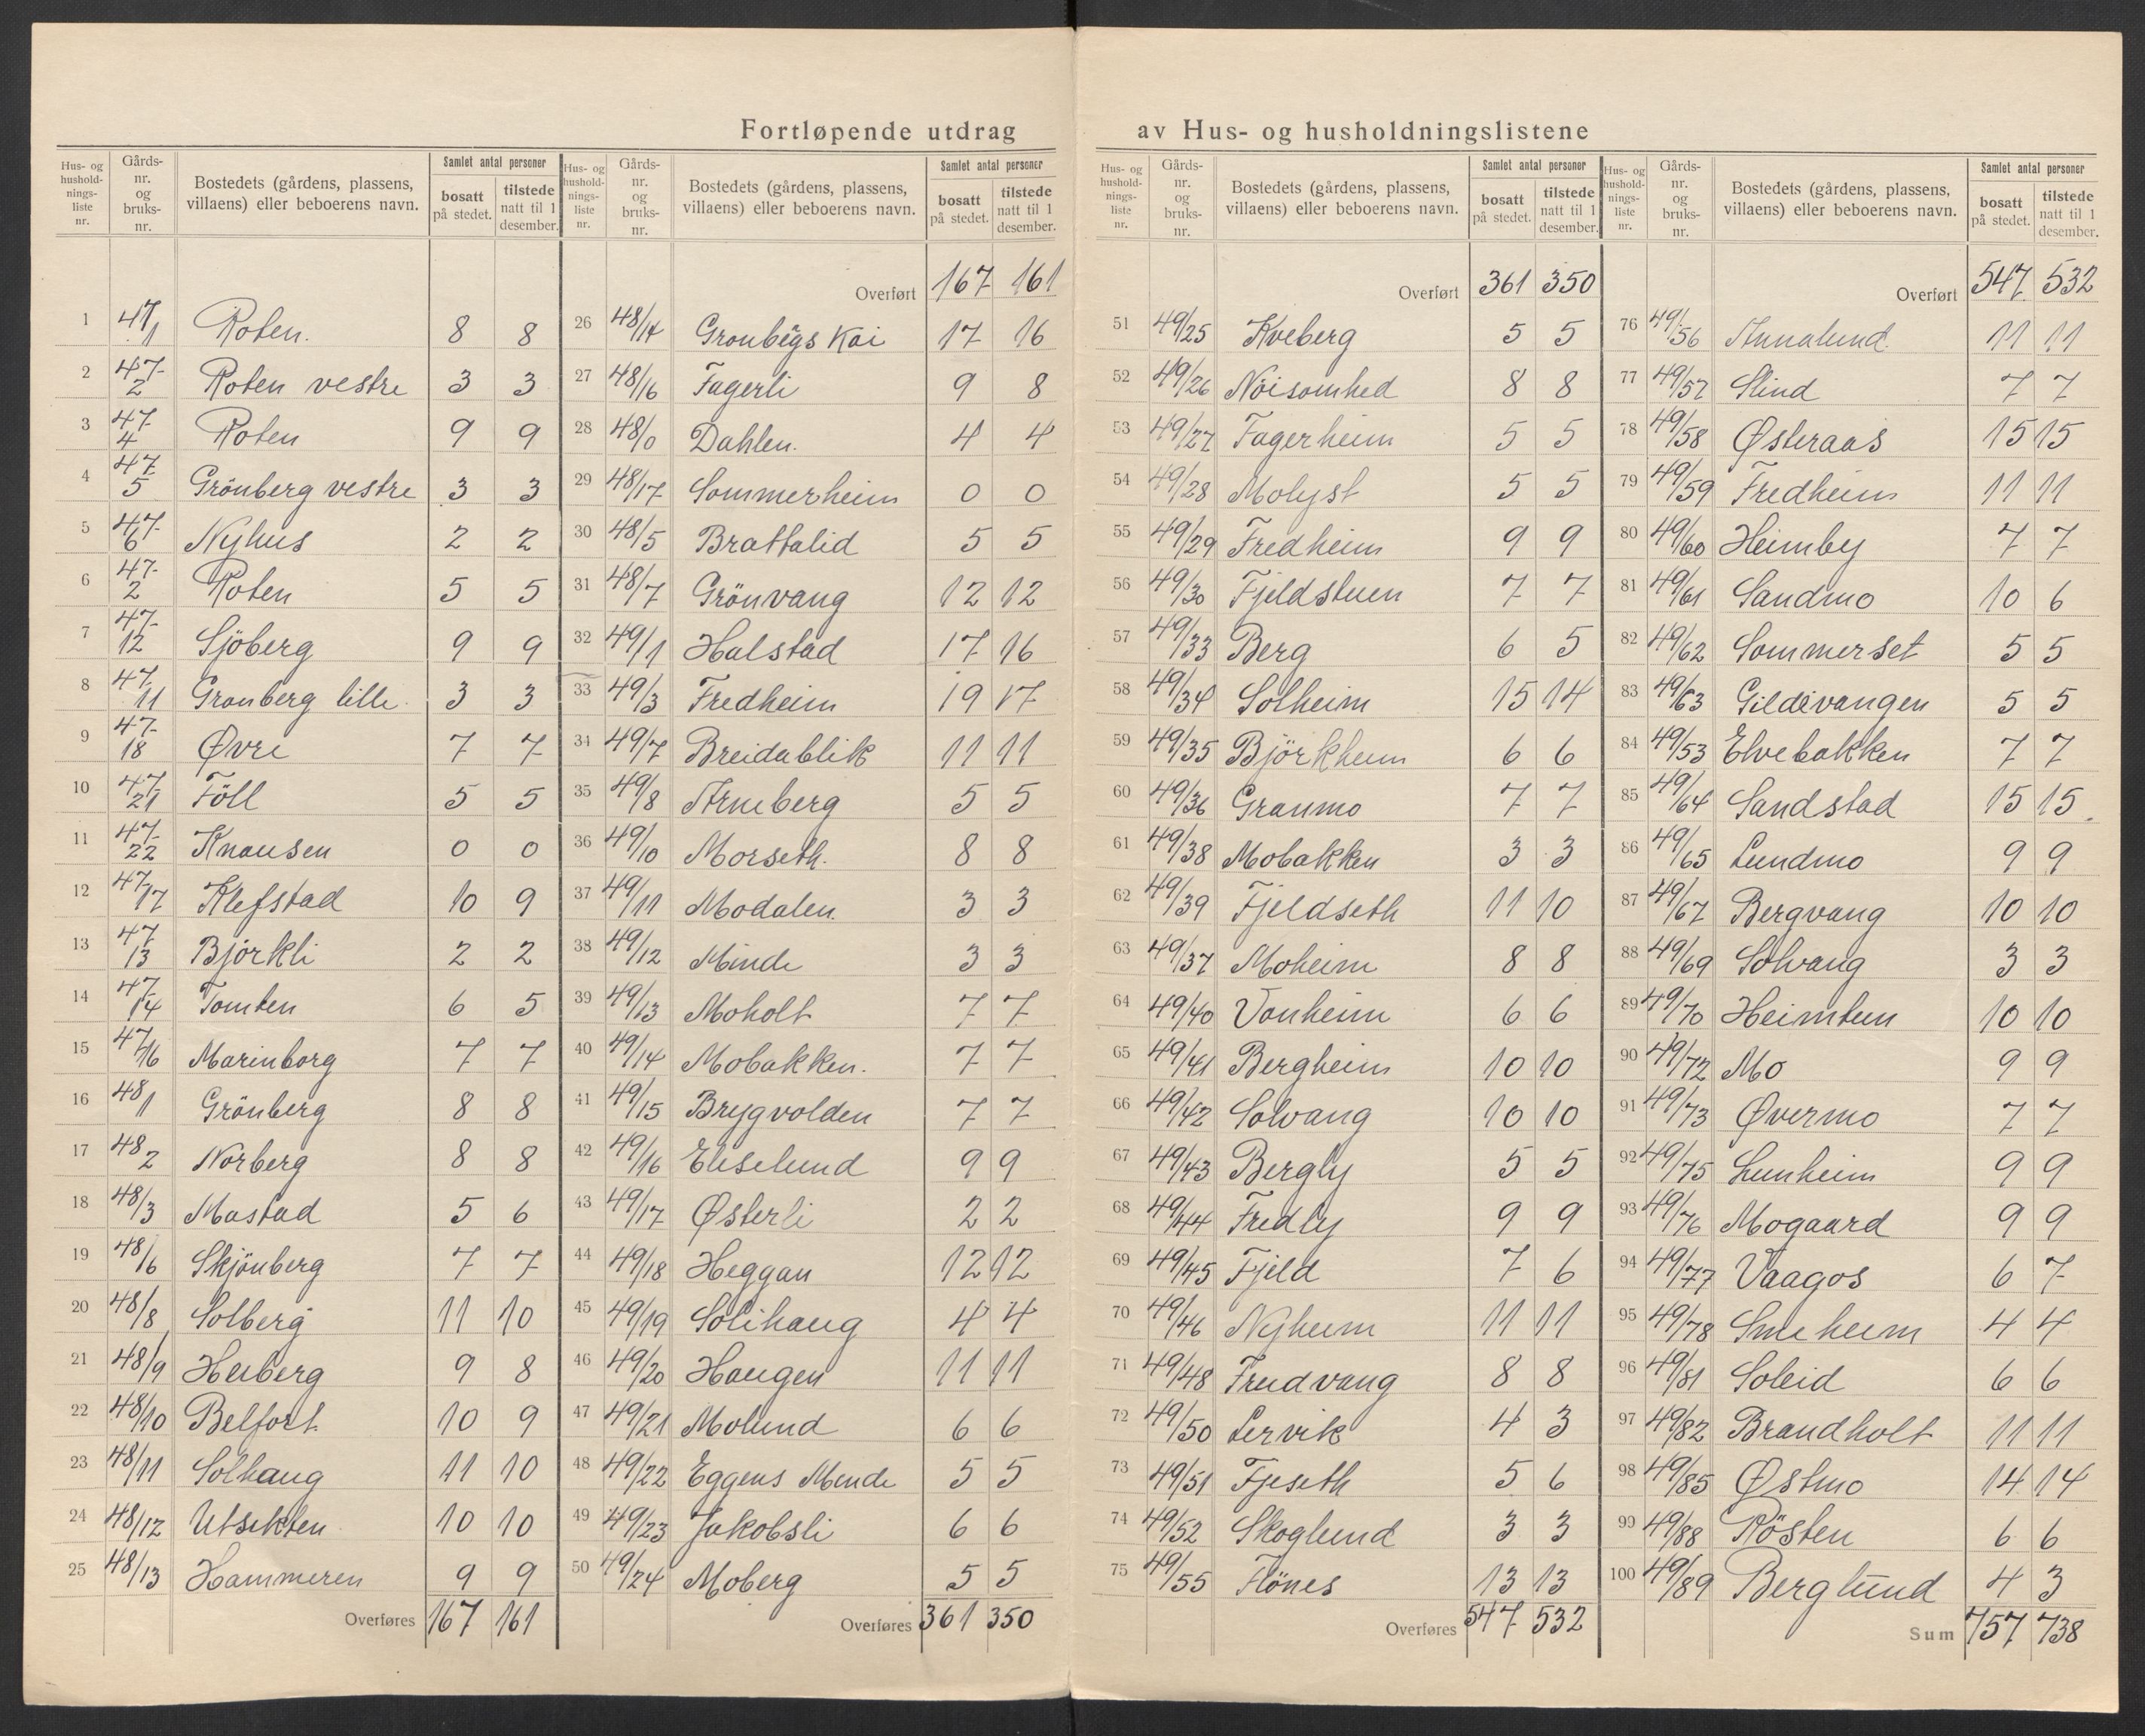 Fortløpende utdrag av Hus- og husholdningslistene
Hus- og husholdningsliste nr. | Gårdsnr. og bruksnr. | Bostedets (gårdens, plassens, villaens) eller beboerens navn. | Samlet antal personer bosatt på stedet. | tilstede natt til 1 desember.
1 47/1 Roten. 8 8
2 47/2 Roten vestre 3 3
3 47/4 Roten 9 9
4 47/5 Grönberg vestre 3 3
5 47/6 Nyhus 2 2
6 47/2 Roten 5 5
7 47/12 Sjöberg 9 9
8 47/11 Gronberg lille 3 3
9 47/18 Øvre 7 7
10 47/21 Föll 5 5
11 47/22 Knausen 0 0
12 47/17 Klefstad 10 9
13 47/13 Björkli 2 2
14 47/14 Tomten 6 5
15 47/16 Marinborg 7 7
16 48/1 Grönberg 8 8
17 48/2 Norberg 8 8
18 48/3 Mastad 5 6
19 48/6 Skjönberg 7 7
20 48/8 Solberg 11 10
21 48/9 Heiberg 9 8
22 48/10 Belfort 10 9
23 48/11 Solhaug 11 10
24 48/12 Utsikten 10 10
25 48/13 Hammeren 9 9
Overføres 167 161
Hus- og husholdningsliste nr. | Gårdsnr. og bruksnr. | Bostedets (gårdens, plassens, villaens) eller beboerens navn. | Samlet antal personer bosatt på stedet. | tilstede natt til 1 desember.
Overført 167 161
26 48/14 Gronbgs Kai 17 16
27 48/16 Fagerli 9 8
28 48/0 Dahlen. 4 4
29 48/17 Sommerheim 0 0
30 48/5 Brattalid 5 5
31 48/7 Grönvang 12 12
32 49/1 Halstad 17 16
33 49/3 Fredheim 19 17
34 49/7 Breidablik 11 11
35 49/8 Arneberg 5 5
36 49/10 Morseth. 8 8
37 49/11 Modalen 3 3
38 49/12 Minde 3 3
39 49/13 Moholt 7 7
40 49/14 Mobakken. 7 7
41 49/15 Brygvolden 7 7
42 49/16 Eliselund 9 9
43 49/17 Østerli 2 2
44 49/18 Heggan 12 12
45 49/19 Solihaug 4 4
46 49/20 Haugen 11 11
47 49/21 Molund 6 6
48 49/22 Eggens Minde 5 5
49 49/23 Jakobsli 6 6
50 49/24 Moberg 5 5
Overføres 361 350
Hus- og husholdningsliste nr. | Gårdsnr. og bruksnr. | Bostedets (gårdens, plassens, villaens) eller beboerens navn. | Samlet antal personer bosatt på stedet. | tilstede natt til 1 desember.
Overført 361 350
51 49/25 Kveberg 5 5
52 49/26 Nöisomhed 8 8
53 49/27 Fagerheim 5 5
54 49/28 Molyst 5 5
55 49/29 Fredheim 9 9
56 49/30 Fjeldstuen 7 7
57 49/33 Berg 6 5
58 49/34 Solheim 15 14
59 49/35 Björkheim 6 6
60 49/36 Granmo 7 7
61 49/38 Mobakken 3 3
62 49/39 Fjeldseth 11 10
63 49/37 Moheim 8 8
64 49/40 Vonheim 6 6
65 49/41 Bergheim 10 10
66 49/42 Solvang 10 10
67 49/43 Bergly 5 5
68 49/44 Fredly 9 9
69 49/45 Fjeld 7 6
70 49/46 Nyheim 11 11
71 49/48 Fredvang 8 8
72 49/50 Lervik 4 3
73 49/51 Fjeseth 5 6
74 49/52 Skoglund 3 3
75 49/55 Flönes 13 13
Overføres 547 532
Hus- og husholdningsliste nr. | Gårdsnr. og bruksnr. | Bostedets (gårdens, plassens, villaens) eller beboerens navn. | Samlet antal personer bosatt på stedet. | tilstede natt til 1 desember.
Overført 547 532
76 49/56 Annalund 11 11
77 49/57 Slind 7 7
78 49/58 Østeraas 15 15
79 49/59 Fredheim 11 11
80 49/60 Heimby 7 7
81 49/61 Sandmo 10 6
82 49/62 Sommerset 5 5
83 49/63 Gildevangen 5 5
84 49/53 Elvebakken 7 7
85 49/64 Sandstad 15 15
86 49/65 Lundmo 9 9
87 49/67 Bergvang 10 10
88 49/69 Solvang 3 3
89 49/70 Heimtun 10 10
90 49/72 Mo 9 9
91 49/73 Øvermo 7 7
92 49/75 Lunheim 9 9
93 49/76 Mogaard 9 9
94 49/77 Vaagos 6 7
95 49/78 Smeheim 4 4
96 49/81 Soleid 6 6
97 49/82 Brandholt 11 11
98 49/85 Østmo 14 14
99 49/88 Rösten 6 6
100 49/89 Berglund 4 3
Sum 757 738